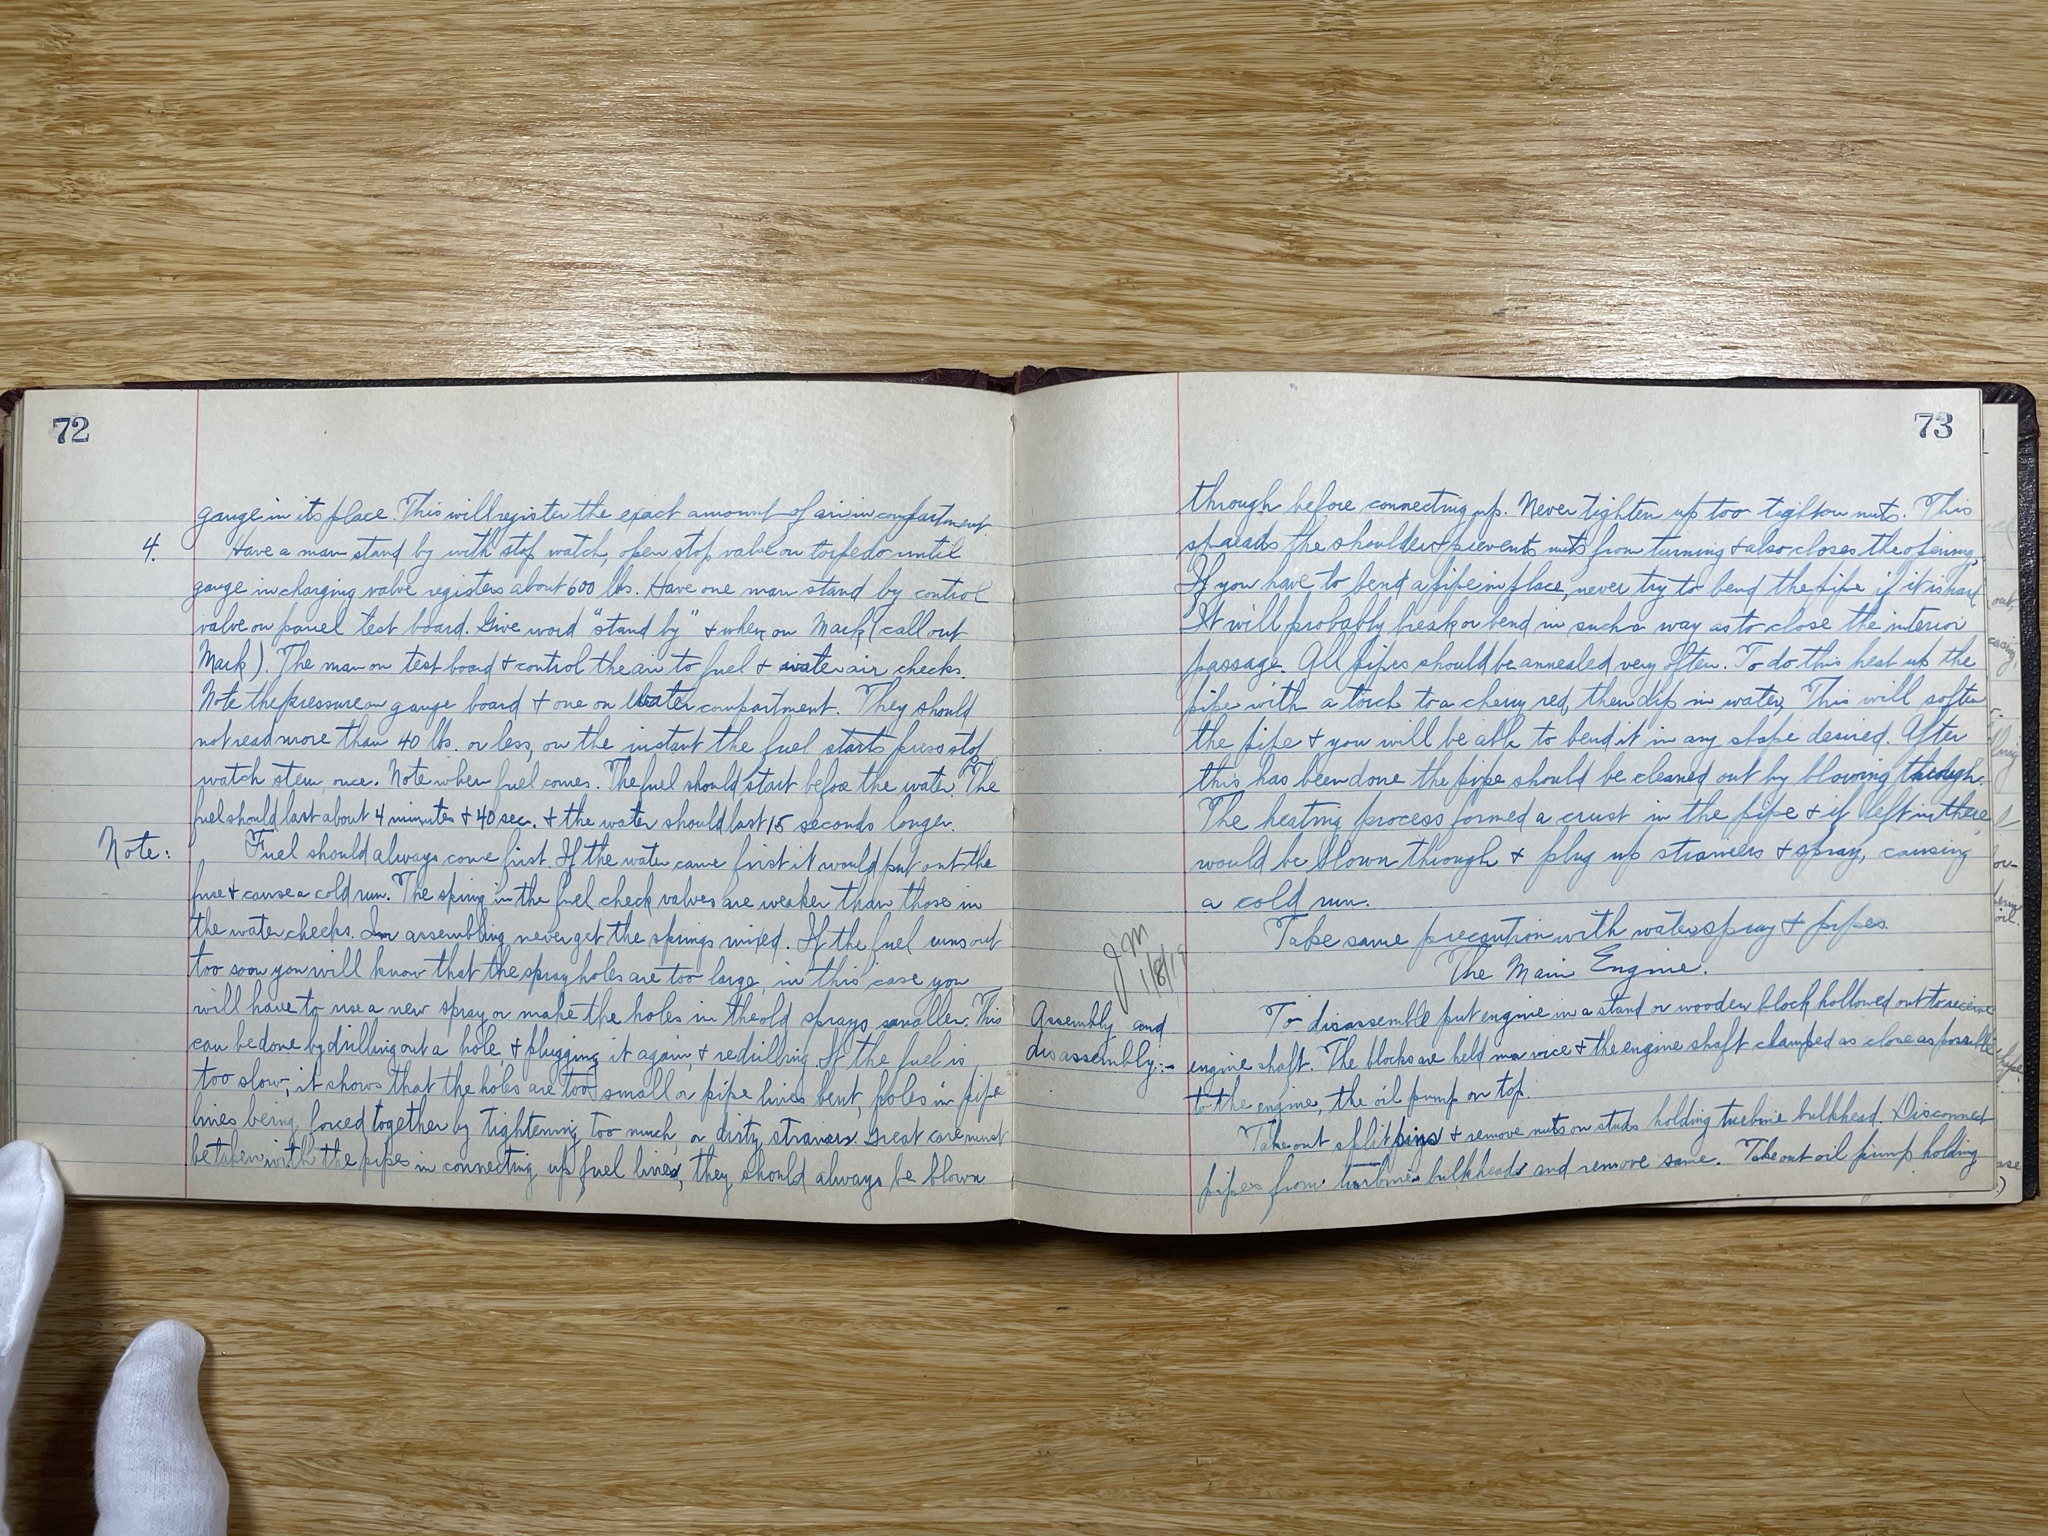 72
gauge in its place. This will register the exact amount of air in compartment.
4. Have a man stand by with stop watch, open stop valve on torpedo until
gauge in charging valve registers about 600 lbs. Have one man stand by control
valve on panel test board. Give word "stand by" & when on Mark (call out
Mark). The man on test board & control the air to fuel & water air checks.
Note the pressure on gauge board & one on water compartment. They should
not read more than 40 lbs. or less, on the instant the fuel starts press stop
watch stem once. Note when fuel comes. The fuel should start before the water. The
fuel should last about 4 minutes & 40 sec. & the water should last 15 seconds longer.
Note: Fuel should always come first. If the water came first it would put out the
fuse & cause a cold run. The spring in the fuel check valves are weaker than those in
the water checks. In assembling never get the springs mixed. If the fuel runs out
too soon you will know that the spray holes are too large, in this case you
will have to use a new spray or make the holes in the old sprays smaller. This
can be done by drilling out a hole & plugging it again & redrilling. If the fuel is
too slow, it shows that the holes are too small or pipe lines bent, holes in pipe
lines being forced together by tightening too much, or dirty strainers. Great care must
be taken with the pipes in connecting up fuel lines, they should always be blown
73
through before connecting up. Never tighten up too tight on nuts. This
spreads the shoulder & prevents nuts from turning & also closes the opening.
If you have to bend a pipe in place, never try to bend the pipe if it is hard
It will probably break or bend in such a way as to close the interior
passage. All pipes should be annealed very often. To do this heat up the
pipe with a torch to a cherry red, then dip in water. This will soften
the pipe & you will be able to bend it in any shape desired. After
this has been done the pipe should be cleaned out by blowing through.
The heating process formed a crust in the pipe & if left in there
would be blown through & plug up strainers & spray, causing
a cold run.
Take same precaution with water spray & pipes.
The Main Engine.
J M
1/8/19
Assembly and
disassembly:-
To disassemble put engine in a stand or wooden block hollowed out to receive
engine shaft. The blocks are held in a vice & the engine shaft clamped as close as possible
to the engine, the oil pump on top.
Take out split pins & remove nuts on studs holding turbine bulkhead. Disconnect
pipes from turbine bulkheads and remove same. Take out oil pump holding